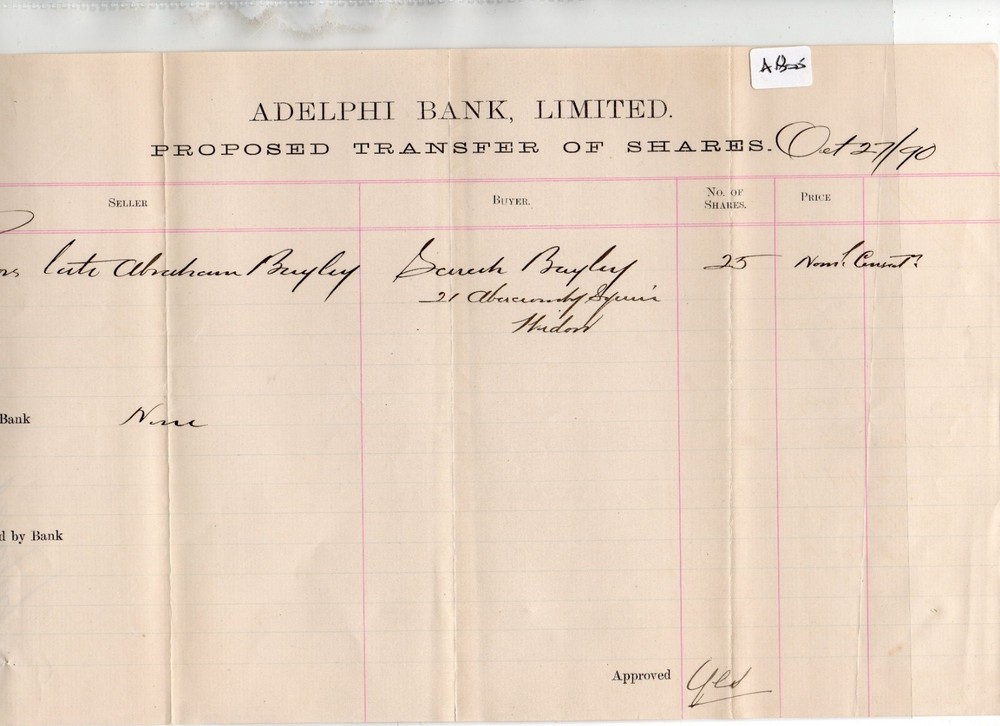 ADELPHI BANK, LIMITED.
PROPOSED TRANSFER OF SHARES. Oct 27/90
SELLER BUYER. NO. OF SHARES. PRICE
late Abraham Bayley Sarah Bayley 25 Noml. Considt.
21 Abercromby Square
Widow
Bank None
d by Bank
Approved Yes